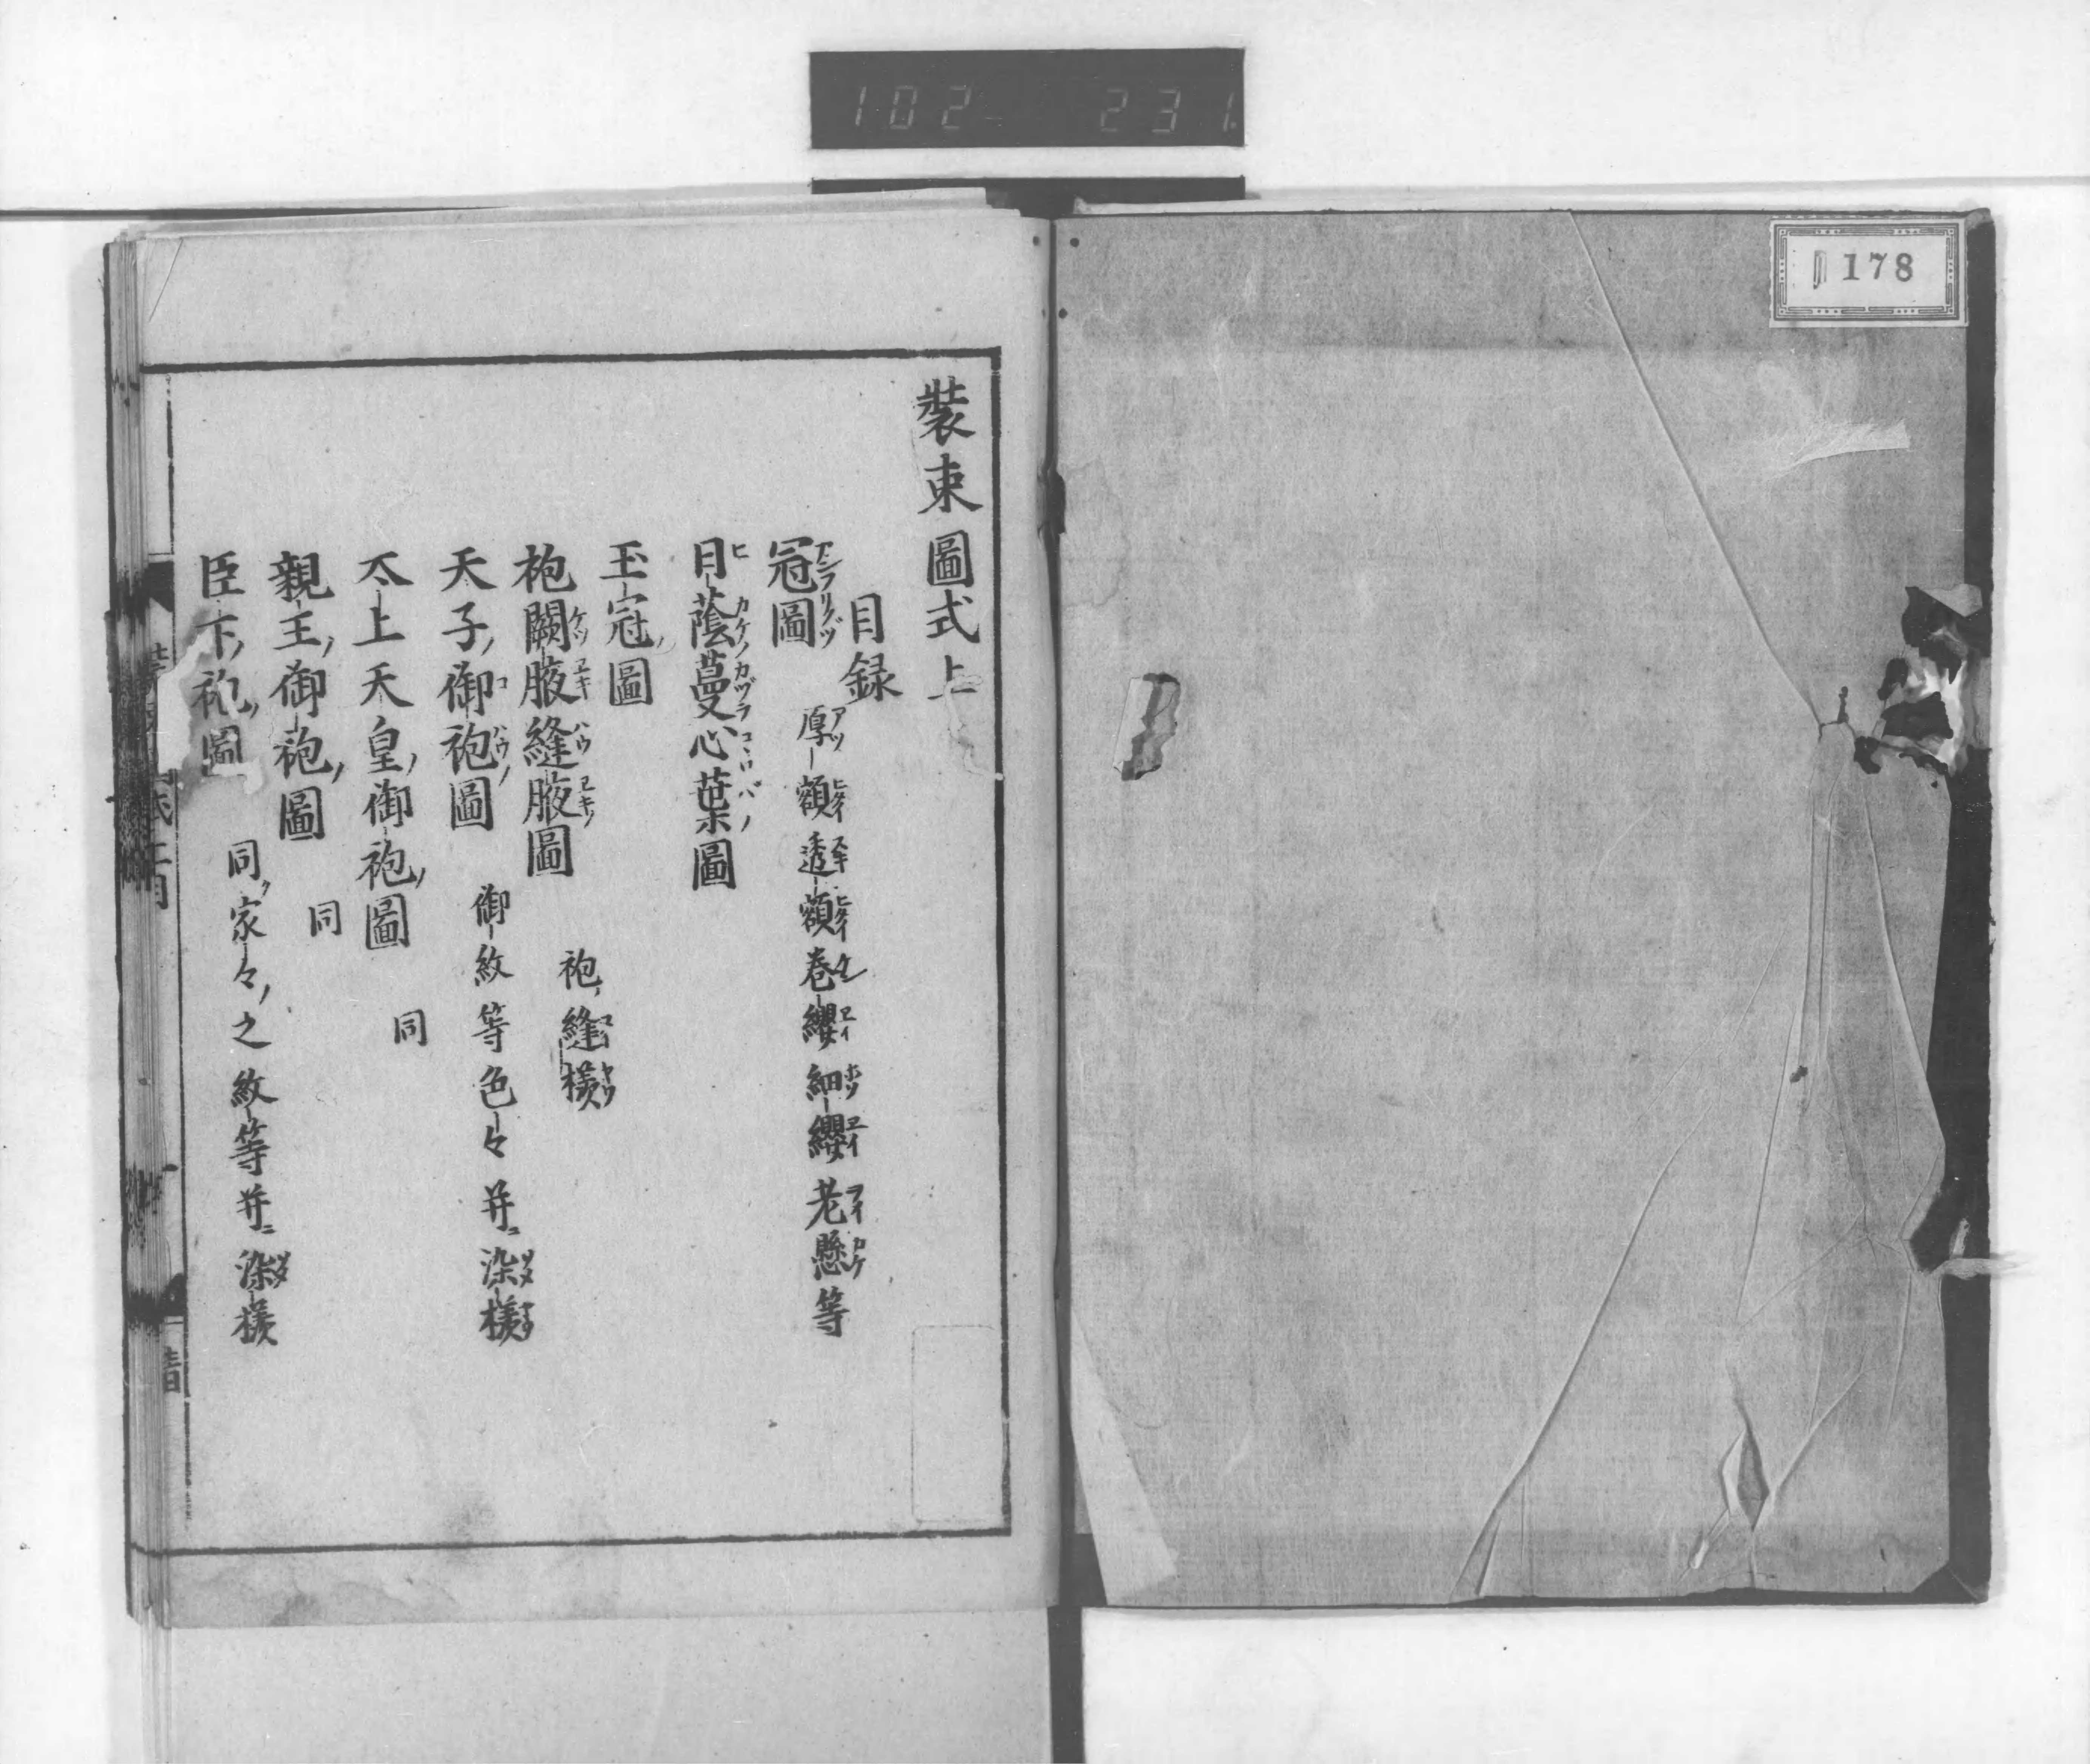 102- 231.
178
裝束圖式上
目録
冠圖 厚額透額卷纓細纓老懸等
日蔭蔓心葉圖
玉冠圖
袍闕腋縫腋圖 袍縫様
天子御袍圖 御紋等色々并ニ染様
太上天皇御袍圖 同
親王御袍圖 同
臣下袍圖 同家々之紋等并ニ染様